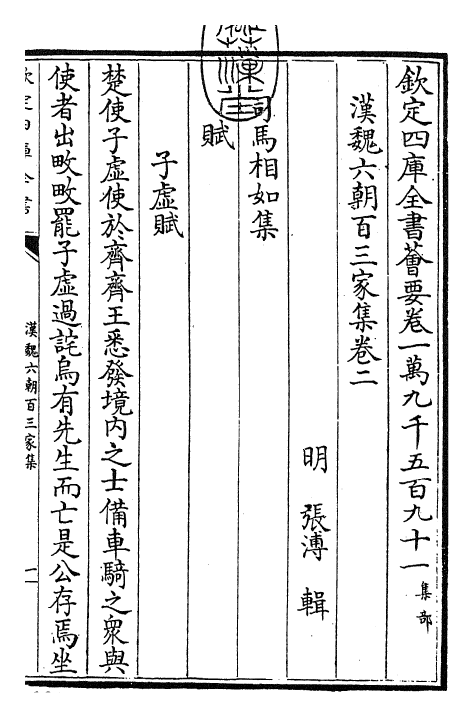 欽定四庫全書薈要卷一萬九千五百九十一集部
漢魏六朝百三家集卷二
明 張溥 輯
司馬相如集
賦
子虛賦
楚使子虛使於齊齊王悉發境内之士備車騎之衆與
使者出畋畋罷子虛過詫烏有先生而亡是公存焉坐
欽定四庫全書
漢魏六朝百三家集